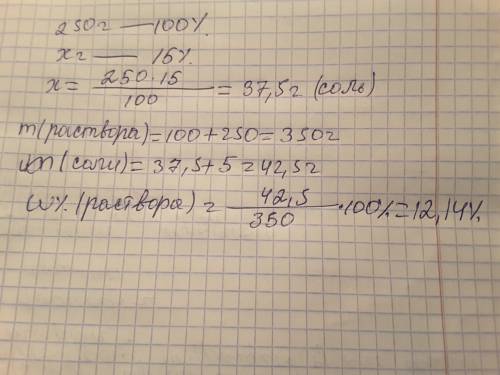 250г — 100%.
xг — 15%.
x = 250·15 / 100 = 37,5г (соль)
m(раствора)=100+250=350г
m(соли)= 37,5+5=42,5г
ω%(раствора) = 42,5 / 350 ·100%=12,14%